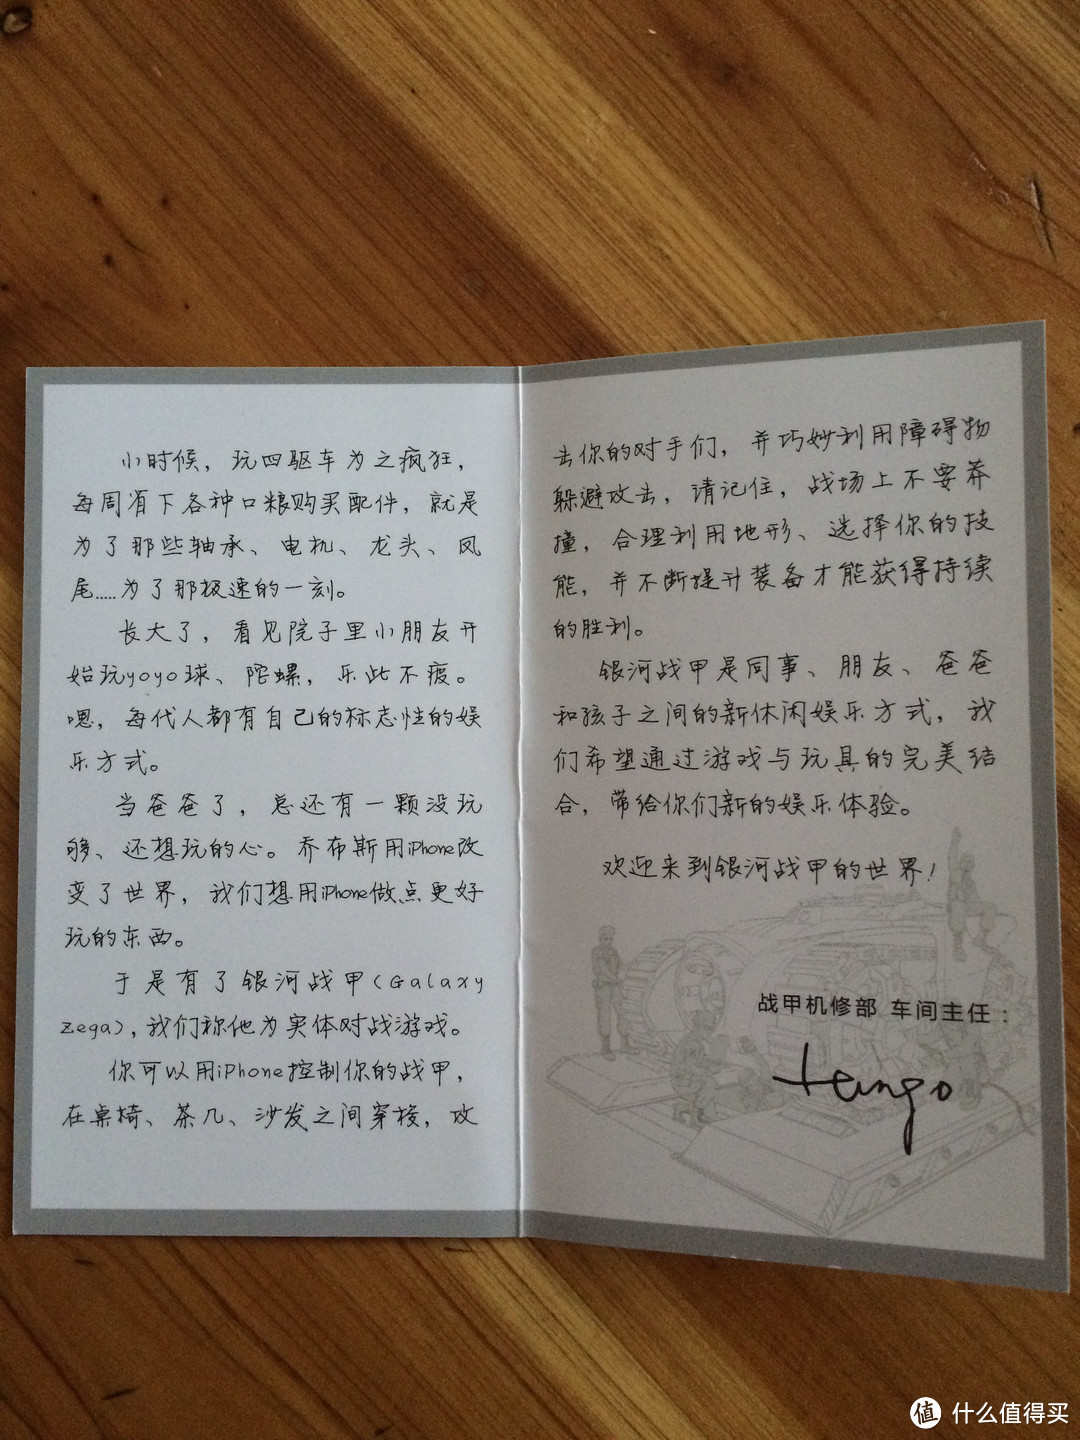 小时候，玩四驱车为之疯狂，
每周省下各种口粮购买配件，就是
为了那些轴承、电机、龙头、凤
尾……为了那极速的一刻。
长大了，看见院子里小朋友开
始玩yoyo球、陀螺，乐此不疲。
嗯，每代人都有自己的标志性的娱
乐方式。
当爸爸了，总还有一颗没玩
够、还想玩的心。乔布斯用iPhone改
变了世界，我们想用iPhone做点更好
玩的东西。
于是有了银河战甲（Galaxy
zega），我们称他为实体对战游戏。
你可以用iPhone控制你的战甲，
在桌椅、茶几、沙发之间穿梭，攻
去你的对手们，并巧妙利用障碍物
躲避攻击，请记住，战场上不要莽
撞，合理利用地形、选择你的技
能，并不断提升装备才能获得持续
的胜利。
银河战甲是同事、朋友、爸爸
和孩子之间的新休闲娱乐方式，我
们希望通过游戏与玩具的完美结
合，带给你们新的娱乐体验。
欢迎来到银河战甲的世界！
战甲机修部 车间主任：
tango
值 什么值得买